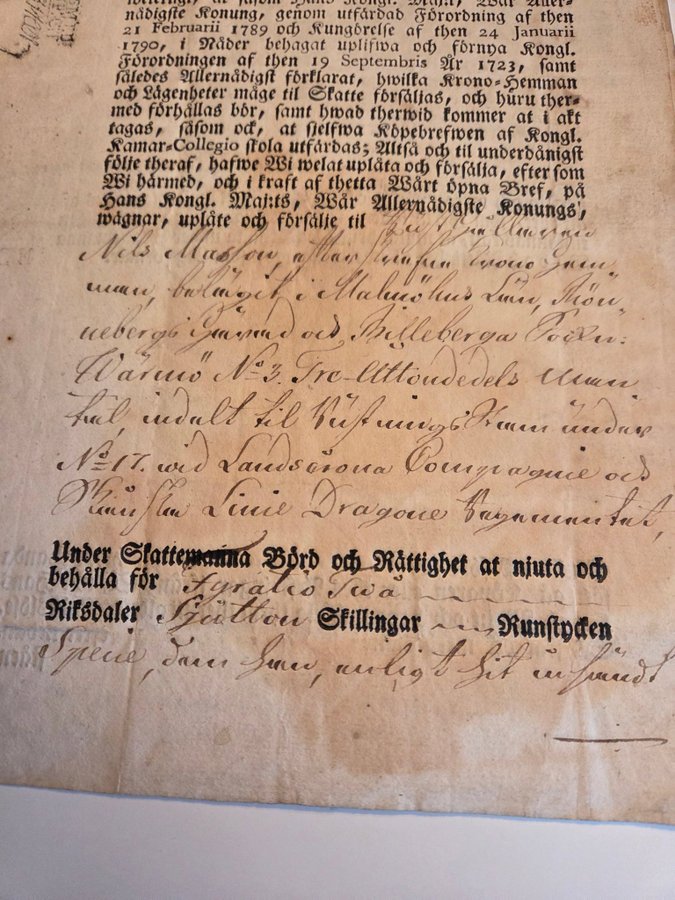 såsom Hans Kongl. Maj:t, Wår Aller-
nådigste Konung, genom utfårdad Förordning af then
21 Februarii 1789 och Kungörelse af then 24 Januarii
1790, i Nåder behagat uplifwa och förnya Kongl.
Förordningen af then 19 Septembris År 1723, samt
således Allernådigst förklarat, hwilka Krono-Hemman
och Lågenheter måge til Skatte försåljas, och huru ther-
med förhållas bör, samt hwad therwid kommer at i akt
tagas, såsom ock, at sjelfwa Köpebrefwen af Kongl.
Kamar-Collegio skola utfårdas; Altså och til underdånigst
följe theraf, hafwe Wi welat uplåta och försålja, efter som
Wi hårmed, och i kraft af thetta Wårt öpna Bref, på
Hans Kongl. Maj:ts, Wår Allernådigste Konungs,
wågnar, uplåte och försålje til
Nils Masson, efterskrefne Krono Hem-
man, belägit i Malmöhus Län, Rön-
nebergs Härad och Billeberga Sockn:
Wärmö No 3. Tre-Åttondedels Man
tal, indelt til Rustnings Stam under
No 17. wid Landscrona Compagnie och
Skånska Linie Dragone Regementet,
Under Skattemanna Börd och Råttighet at njuta och
behålla för Fyratio Twå
Riksdaler Sjutton Skillingar Runstycken
Specie, dem han, enligt hit insändt